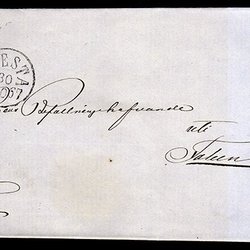 ESTA
30
1867
Befallningshafvande
uti
Falun